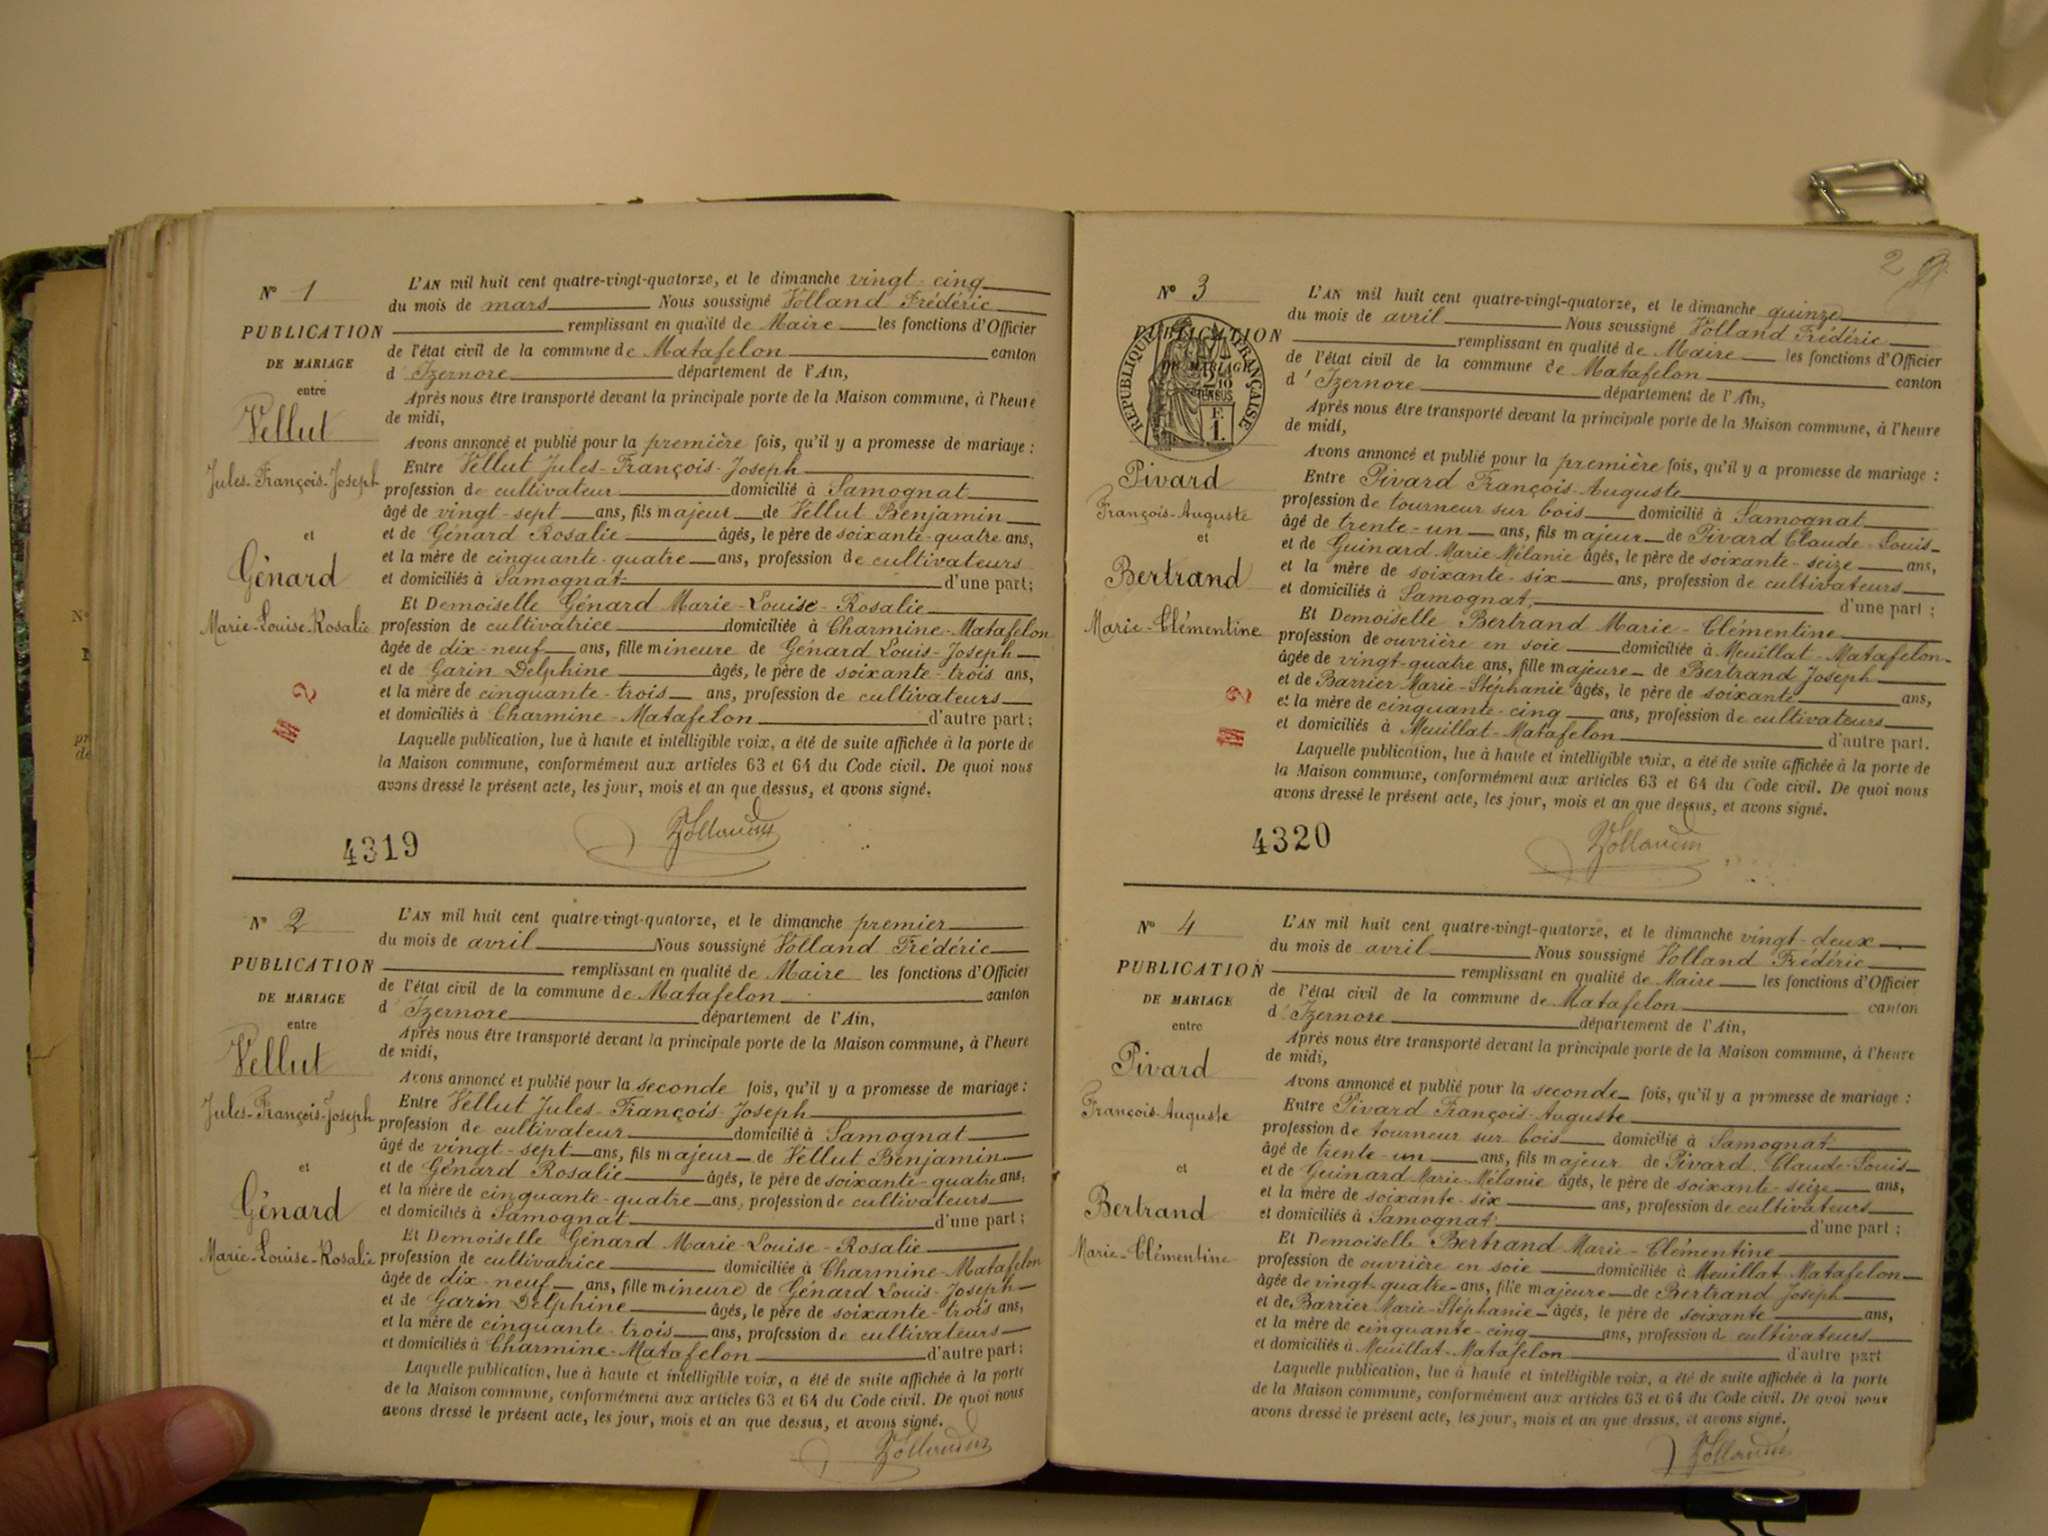 N° 1
PUBLICATION
DE MARIAGE
entre
Vellut
Jules-François-Joseph
et
Génard
Marie-Louise-Rosalie
L'AN mil huit cent quatre-vingt-quatorze, et le dimanche vingt-cinq
du mois de mars Nous soussigné Volland Frédéric
remplissant en qualité de Maire les fonctions d'Officier
de l'état civil de la commune de Matafelon canton
d'Izernore département de l'Ain,
Après nous être transporté devant la principale porte de la Maison commune, à l'heure
de midi,
Avons annoncé et publié pour la première fois, qu'il y a promesse de mariage :
Entre Vellut Jules-François-Joseph
profession de cultivateur domicilié à Samognat
âgé de vingt-sept ans, fils majeur de Vellut Benjamin
et de Génard Rosalie âgés, le père de soixante-quatre ans,
et la mère de cinquante-quatre ans, profession de cultivateurs
et domiciliés à Samognat d'une part;
Et Demoiselle Génard Marie-Louise-Rosalie
profession de cultivatrice domiciliée à Charmine-Matafelon
âgée de dix-neuf ans, fille mineure de Génard Louis-Joseph
et de Garin Delphine âgés, le père de soixante-trois ans,
et la mère de cinquante-trois ans, profession de cultivateurs
et domiciliés à Charmine-Matafelon d'autre part;
Laquelle publication, lue à haute et intelligible voix, a été de suite affichée à la porte de
la Maison commune, conformément aux articles 63 et 64 du Code civil. De quoi nous
avons dressé le présent acte, les jour, mois et an que dessus, et avons signé.
M 2
4319
N° 2
PUBLICATION
DE MARIAGE
entre
Vellut
Jules-François-Joseph
et
Génard
Marie-Louise-Rosalie
L'AN mil huit cent quatre-vingt-quatorze, et le dimanche premier
du mois de avril Nous soussigné Volland Frédéric
remplissant en qualité de Maire les fonctions d'Officier
de l'état civil de la commune de Matafelon canton
d'Izernore département de l'Ain,
Après nous être transporté devant la principale porte de la Maison commune, à l'heure
de midi,
Avons annoncé et publié pour la seconde fois, qu'il y a promesse de mariage :
Entre Vellut Jules-François-Joseph
profession de cultivateur domicilié à Samognat
âgé de vingt-sept ans, fils majeur de Vellut Benjamin
et de Génard Rosalie âgés, le père de soixante-quatre ans,
et la mère de cinquante-quatre ans, profession de cultivateurs
et domiciliés à Samognat d'une part;
Et Demoiselle Génard Marie-Louise-Rosalie
profession de cultivatrice domiciliée à Charmine-Matafelon
âgée de dix-neuf ans, fille mineure de Génard Louis-Joseph
et de Garin Delphine âgés, le père de soixante-trois ans,
et la mère de cinquante-trois ans, profession de cultivateurs
et domiciliés à Charmine-Matafelon d'autre part;
Laquelle publication, lue à haute et intelligible voix, a été de suite affichée à la porte
de la Maison commune, conformément aux articles 63 et 64 du Code civil. De quoi nous
avons dressé le présent acte, les jour, mois et an que dessus, et avons signé.
2
N° 3
PUBLICATION
DE MARIAGE
RÉPUBLIQUE FRANÇAISE
F.
1.
Pivard
François-Auguste
et
Bertrand
Marie-Clémentine
L'AN mil huit cent quatre-vingt-quatorze, et le dimanche quinze
du mois de avril Nous soussigné Volland Frédéric
remplissant en qualité de Maire les fonctions d'Officier
de l'état civil de la commune de Matafelon canton
d'Izernore département de l'Ain,
Après nous être transporté devant la principale porte de la Maison commune, à l'heure
de midi,
Avons annoncé et publié pour la première fois, qu'il y a promesse de mariage :
Entre Pivard François-Auguste
profession de tourneur sur bois domicilié à Samognat
âgé de trente-un ans, fils majeur de Pivard Claude-Louis
et de Guinard Marie Mélanie âgés, le père de soixante-seize ans,
et la mère de soixante-six ans, profession de cultivateurs
et domiciliés à Samognat, d'une part;
Et Demoiselle Bertrand Marie-Clémentine
profession de ouvrière en soie domiciliée à Meuillat-Matafelon
âgée de vingt-quatre ans, fille majeure de Bertrand Joseph
et de Barrier Marie-Stéphanie âgés, le père de soixante ans,
et la mère de cinquante-cinq ans, profession de cultivateurs
et domiciliés à Meuillat-Matafelon d'autre part.
Laquelle publication, lue à haute et intelligible voix, a été de suite affichée à la porte de
la Maison commune, conformément aux articles 63 et 64 du Code civil. De quoi nous
avons dressé le présent acte, les jour, mois et an que dessus, et avons signé.
M 2
4320
N° 4
PUBLICATION
DE MARIAGE
entre
Pivard
François-Auguste
et
Bertrand
Marie-Clémentine
L'AN mil huit cent quatre-vingt-quatorze, et le dimanche vingt-deux
du mois de avril Nous soussigné Volland Frédéric
remplissant en qualité de Maire les fonctions d'Officier
de l'état civil de la commune de Matafelon canton
d'Izernore département de l'Ain,
Après nous être transporté devant la principale porte de la Maison commune, à l'heure
de midi,
Avons annoncé et publié pour la seconde fois, qu'il y a promesse de mariage :
Entre Pivard François-Auguste
profession de tourneur sur bois domicilié à Samognat
âgé de trente-un ans, fils majeur de Pivard Claude-Louis
et de Guinard Marie-Mélanie âgés, le père de soixante-seize ans,
et la mère de soixante-six ans, profession de cultivateurs
et domiciliés à Samognat d'une part;
Et Demoiselle Bertrand Marie-Clémentine
profession de ouvrière en soie domiciliée à Meuillat-Matafelon
âgée de vingt-quatre ans, fille majeure de Bertrand Joseph
et de Barrier Marie-Stéphanie âgés, le père de soixante ans,
et la mère de cinquante-cinq ans, profession de cultivateurs
et domiciliés à Meuillat-Matafelon d'autre part
Laquelle publication, lue à haute et intelligible voix, a été de suite affichée à la porte
de la Maison commune, conformément aux articles 63 et 64 du Code civil. De quoi nous
avons dressé le présent acte, les jour, mois et an que dessus, et avons signé.